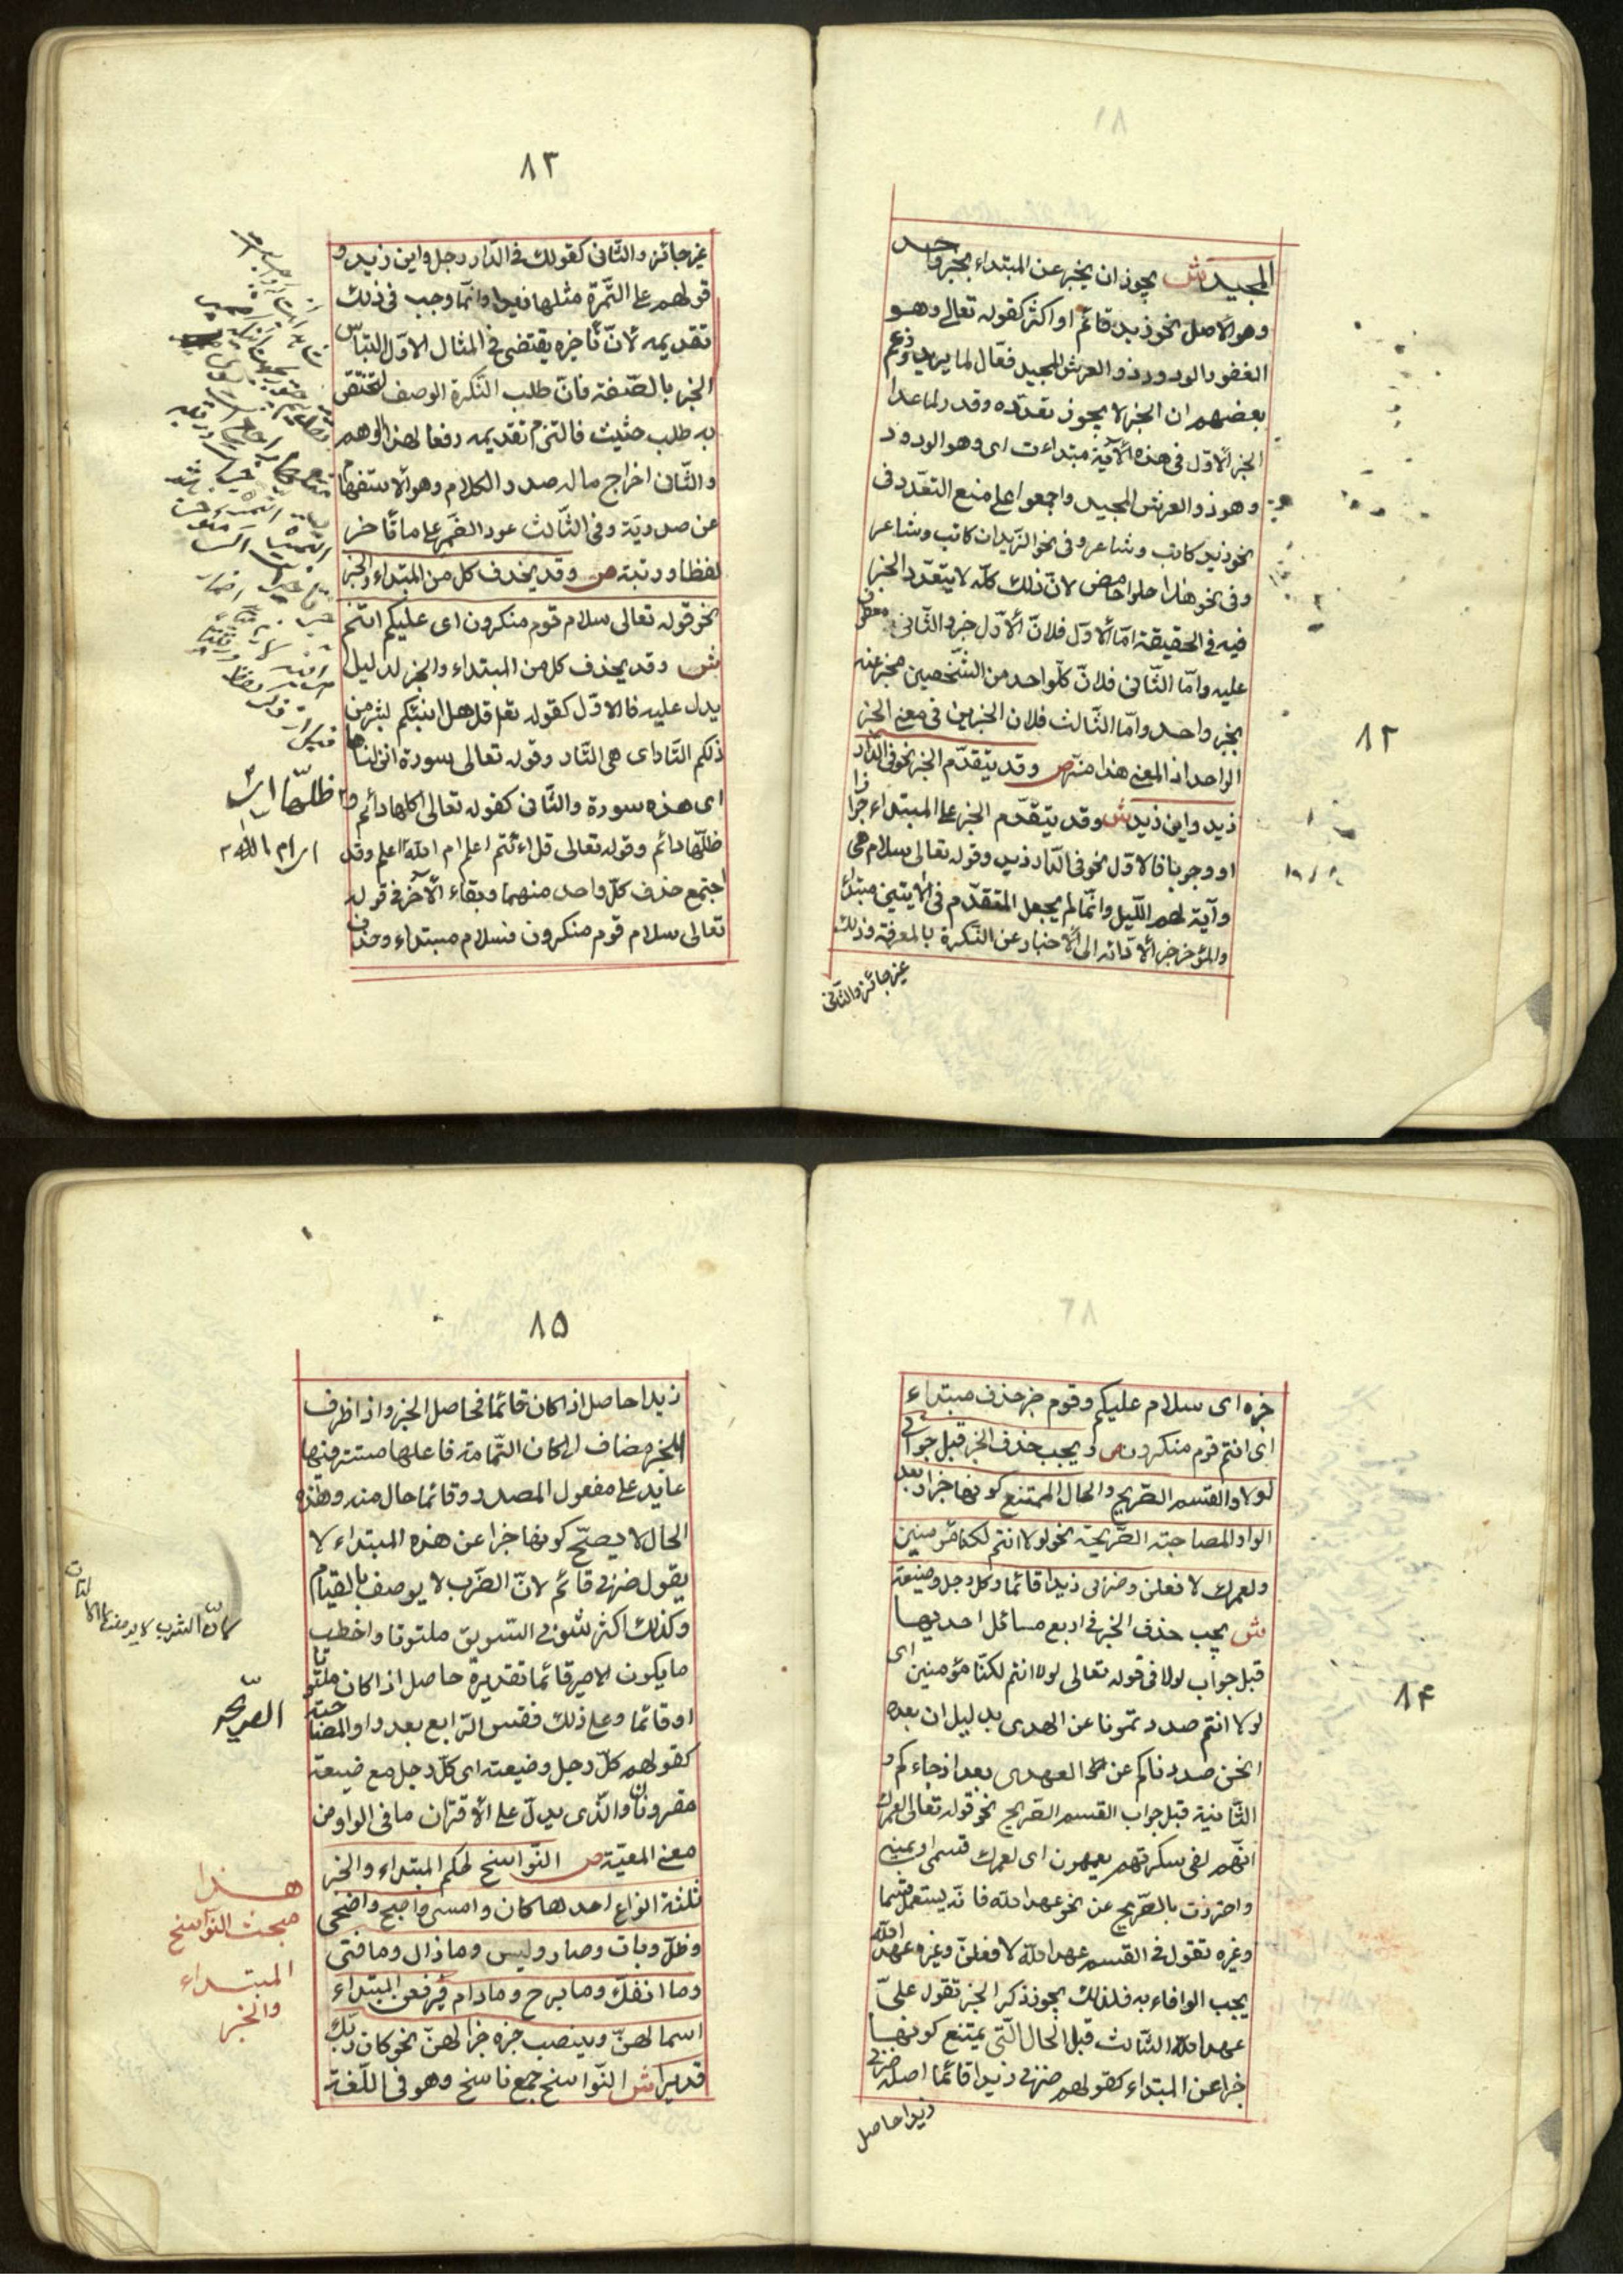 ٨٢
المجيد ش يجوز ان يخبر عن المبتداء بخبر واحد
وهو الأصل نحو زيد قائم او اكثر كقوله تعالى وهو
الغفور الودود ذو العرش المجيد فعّال لما يريد وزعم
بعضهم ان الخبر لا يجوز تعدّده وقدر لما عدا
الخبر الأوّل فى هذه الآية مبتداءت اى وهو الودود
وهو ذو العرش المجيد واجمعوا على منع التعدّد فى
نحو زيد كاتب وشاعر وفى نحو الزيدان كاتب وشاعر
وفى نحو هذا حلو حامض لانّ ذلك كلّه لا يتعدّد الخبر
فيه فى الحقيقة امّا الأوّل فلانّ الأوّل خبر والثّانى معطوف
عليه وامّا الثّانى فلانّ كلّ واحد من الشّخصين مخبر عنه
بخبر واحد وامّا الثّالث فلان الخبرين فى معنى الخبر
الواحد اذ المعنى هذا مزّ ص وقد يتقدّم الخبر نحو فى الدّار
زيد واين زيد ش وقد يتقدّم الخبر على المبتداء جوازا
او وجوبا فالاوّل نحو فى الدّار زيد وقوله تعالى سلام هى
وآية لهم اللّيل وانّما لم يجعل المتقدّم فى الآيتين مبتداء
والمؤخر خبرا لأدّائه الى الأخبار عن النّكرة بالمعرفة وذلك
غير جائز والثّانى
٨٣
غير جائز والثّانى كقولك فى الدّار رجل واين زيد و
قولهم على التّمرة مثلها زبدا وانّما وجب فى ذلك
تقديمه لانّ تأخيره يقتضى فى المثال الاوّل التباس
الخبر بالصّفة فانّ طلب النّكرة الوصف لتختصّ
به طلب حثيث فالتزم تقديمه دفعا لهذا الوهم
والثّانى اخراج ماله صدر الكلام وهو الاستفهام
عن صدريّة وفى الثّالث عود الضّمير على ما تأخر
لفظا ورتبة ص وقد يحذف كل من المبتداء والخبر
نحو قوله تعالى سلام قوم منكرون اى عليكم انتم
ش وقد يحذف كل من المبتداء والخبر لدليل
يدل عليه فالاوّل كقوله تعا قل هل انبئكم بشر من
ذلكم النّار اى هى النّار وقوله تعالى سورة انزلناها
اى هذه سورة والثّانى كقوله تعالى اكلها دائم و
ظلّها دائم وقوله تعالى قل ءانتم اعلم ام اللّه اعلم وقد
اجتمع حذف كلّ واحد منهما وبقاء الآخر فى قوله
تعالى سلام قوم منكرون فسلام مبتداء وحذف
ظلّها اى
ام اللّه
٨٤
خبره اى سلام عليكم وقوم خبر حذف مبتداء
اى انتم قوم منكرون ص ويجب حذف الخبر قبل جوابى
لولا والقسم الصّريح والحال الممتنع كونها خبرا وبعد
الواو المصاحبة الصّريحة نحو لولا انتم لكنّا مؤمنين
ولعمرك لافعلن وضربى زيدا قائما وكل رجل وضيعته
ش يجب حذف الخبر فى اربع مسائل احديها
قبل جواب لولا فى قوله تعالى لولا انتم لكنّا مؤمنين اى
لولا انتم صددتمونا عن الهدى بدليل ان بعده
انحن صددناكم عن الهدى بعد اذ جاءكم و
الثّانية قبل جواب القسم الصّريح نحو قوله تعالى لعمرك
انّهم لفى سكرتهم يعمهون اى لعمرك قسمى او يمينى
واحترزت بالصّريح عن نحو عهد اللّه فانّه يستعمل قسما
وغيره تقول فى القسم عهد اللّه لافعلنّ وغيره عهد اللّه
يجب الوفاء به فلذلك يجوز ذكر الخبر تقول علىّ
عهد اللّه الثّالث قبل الحال الّتى يمتنع كونها
خبرا عن المبتداء كقولهم ضربى زيدا قائما اصله ضربى
زيدا حاصل
٨٥
زيدا حاصل اذا كان قائما فحاصل الخبر واذا ظرف
للخبر مضاف لى كان التّامة فاعلها مستتر فيها
عايد على مفعول المصدر وقائما حال منه وهذه
الحال لا يصحّ كونها خبرا عن هذه المبتداء لا
يقول ضربى قائم لانّ الضّرب لا يوصف بالقيام
وكذلك اكثر شربى السّويق ملتوتا واخطب
ما يكون الامير قائما تقديره حاصل اذا كان ملتوتا
او قائما وعلى ذلك فقس الرّابع بعد واو المصاحبة
كقولهم كلّ رجل وضيعته اى كلّ رجل مع ضيعته
مقرونان والّذى يدلّ على الأقتران ما فى الواو من
معنى المعيّة ص النّواسخ لحكم المبتداء والخبر
ثلثة انواع احدها كان وامسى واصبح واضحى
وظلّ وبات وصار وليس وما زال وما فتى
وما انفكّ وما برح وما دام فيرفعن المبتداء
اسما لهنّ وينصب خبره خبرا لهنّ نحو كان ربّك
قديرا ش النّواسخ جمع ناسخ وهو فى اللّغة
الصّريحه
هذا
مبحث النّواسخ
المبتداء
والخبر